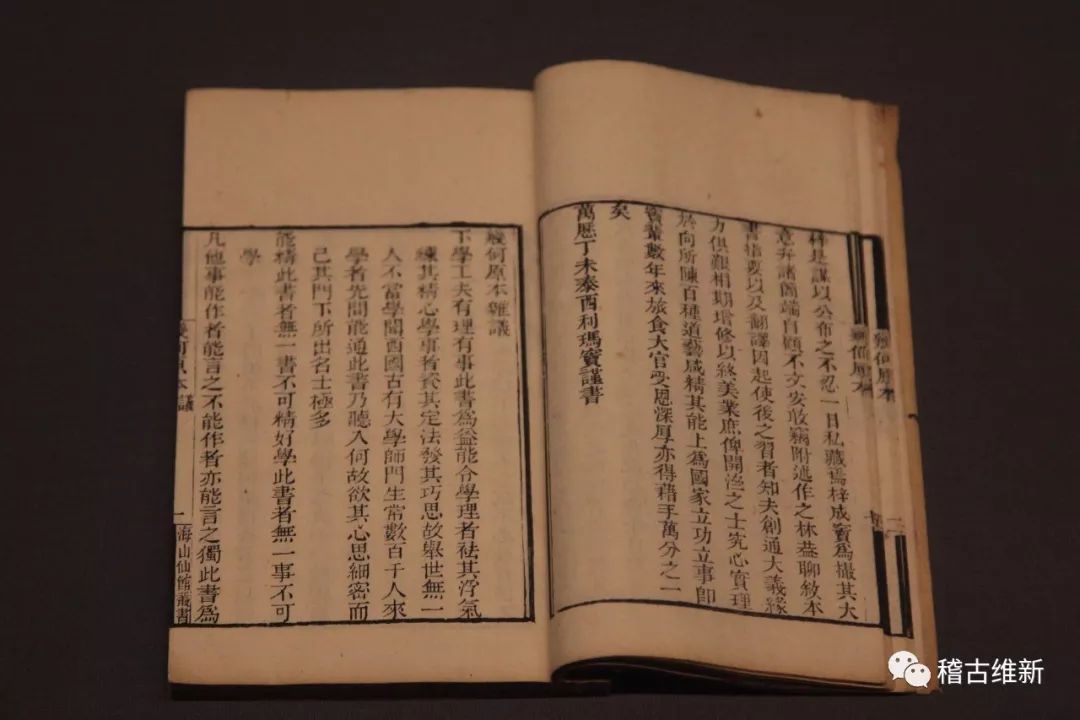 梓是謀以公布之不忍一日私藏焉梓成竇為撮其大
意弁諸簡端自顧不文安敢竊附述作之林葢聊敘本
書指要以及翻譯因起使後之習者知夫創通大義緣
力俱艱相期增修以終美業庶俾開濟之士究心實理
於向所陳百種道藝咸精其能上為國家立功立事即
竇輩數年來旅食大官受恩深厚亦得藉手萬分之一
矣
萬歷丁未泰西利瑪竇謹書
幾何原本雜議
下學工夫有理有事此書為益能令學理者祛其浮氣
練其精心學事者資其定法發其巧思故舉世無一
人不當學聞西國古有大學師門生常數百千人來
學者先問能通此書乃聽入何故欲其心思細密而
已其門下所出名士極多
能精此書者無一書不可精好學此書者無一事不可
學
凡他事能作者能言之不能作者亦能言之獨此書為
幾何原本
議
一
海山仙館叢書
幾何原本
稽古维新